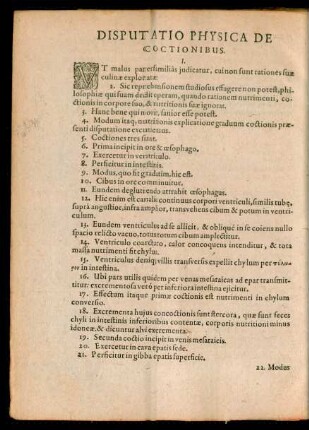 DISPUTATIO PHYSICA DE
COCTIONIBUS.
I.
VT malus paterfamiliâs judicatur, cui non sunt rationes suæ
culinæ exploratæ:
2. Sic reprehensionem studiosus effugere non potest, phi-
losophiæ qui suam dedit operam, quando rationem nutrimenti, co-
ctionis in corpore suo, & nutritionis suæ ignorat.
3. Hunc bene qui novit, sanior esse potest.
4. Modum itaq; nutritionis explicatione graduum coctionis præ-
senti disputatione excutiemus.
5. Coctiones tres sunt.
6. Prima incipit in ore & œsophago.
7. Exercetur in ventriculo.
8. Perficitur in intestinis.
9. Modus, quo fit gradatim, hic est.
10. Cibus in ore comminuitur.
11. Eundem deglutiendo attrahit œsophagus.
12. Hic enim est canalis continuus corpori ventriculi, similis tubæ,
suprà angustior, infra amplior, transvehens cibum & potum in ventri-
culum.
13. Eundem ventriculus ad se allicit, & obliquè in se coiens nullo
spacio relicto vacuo, rotu totum cibum amplectitur.
14. Ventriculo coarctato, calor concoquens incenditur, & tota
massa nutrimenti fit chylus.
15. Ventriculus deniq; villis transversis expellit chylum per
in intestina.
16. Ubi para utilis quidem per venas mesaraicas ad epar transmit-
titur: excrementosa verò per inferiora intestina ejicitur.
17. Effectum itaque primæ coctionis est nutrimenti in chylum
conversio.
18. Excrementa hujus concoctionis sunt stercora, quæ sunt fæces
chyli in intestinis inferioribus contentæ, corporis nutritioni minus
idoneæ, & dicuntur alvi excrementa.
19. Secunda coctio incipit in venis mesaraicis.
20. Exercetur in cava epatis sede.
21. Perficitur in gibba epatis superficie.
22. Modus